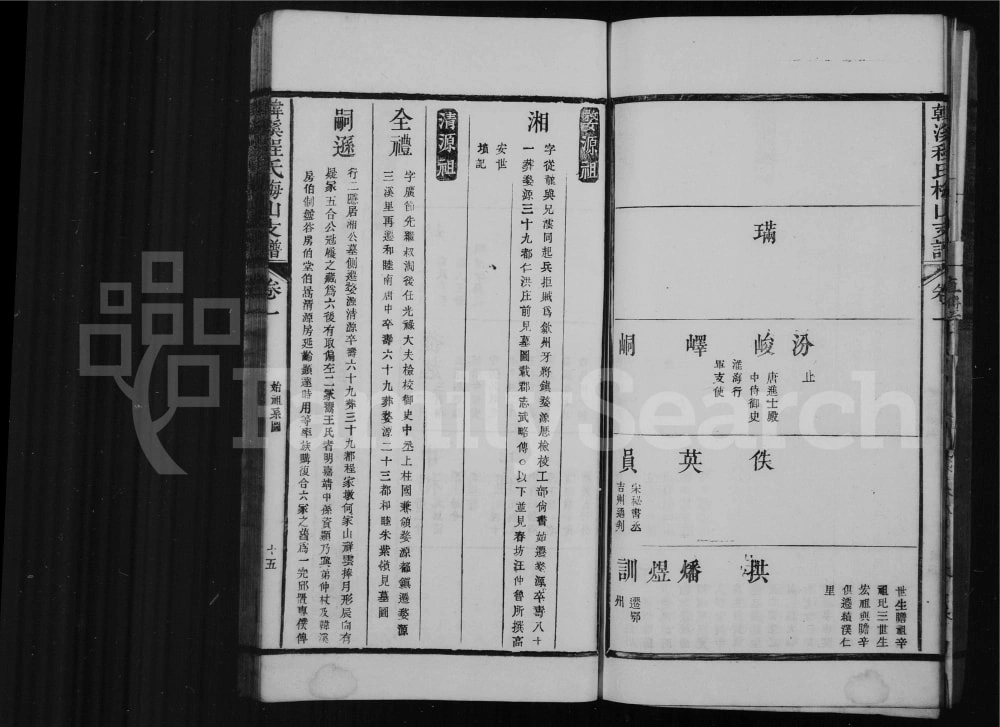 韓溪程氏梅山支譜
卷一
璊
汾 止
峻 唐進士殿
中侍御史
嶧 淮海行
軍支使
峒
佚
英
員 宋祕書丞
吉州通判
世生瞻祖辛
祖玘三世生
宏祖與瞻辛
俱遷績溪仁
里
拱
燔
煜
訓 遷鄂
州
婺源祖
湘 字從龍與兄澐同起兵拒賊爲歙州牙將鎮婺源歷檢校工部尙書始遷婺源卒壽八十
一葬婺源三十九都仁洪庄前見墓圖載郡志武略傳〇以下並見春坊汪仲魯所撰高
安世
墳記
清源祖
全禮 字廣 先 叔 後任光祿大夫檢校御史中丞上柱國兼領婺源都鎮遷婺源
三溪里再遷和睦南唐中卒壽六十九葬婺源二十三都和睦朱紫嶺見墓圖
嗣遜 行二 居湘公墓側遷婺源清源卒壽六十九葬三十九都程家墩何家山 雲捧月形辰向有
疑冢五合公冠履之藏爲六後有取偏左二冢 王氏者明嘉靖中孫資顯乃與弟仲杖及韓溪
房伯制 房伯堂伯昌清源房延齡顯達時用等率族購復合六冢之舊爲一完邱置專僕傳
韓溪程氏梅山支譜
卷一
始祖系圖
十五